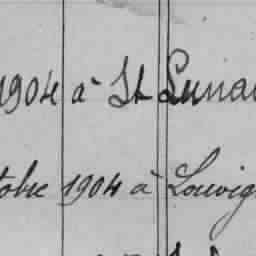 1904 à St Lunai
tobre 1904 à Louvig